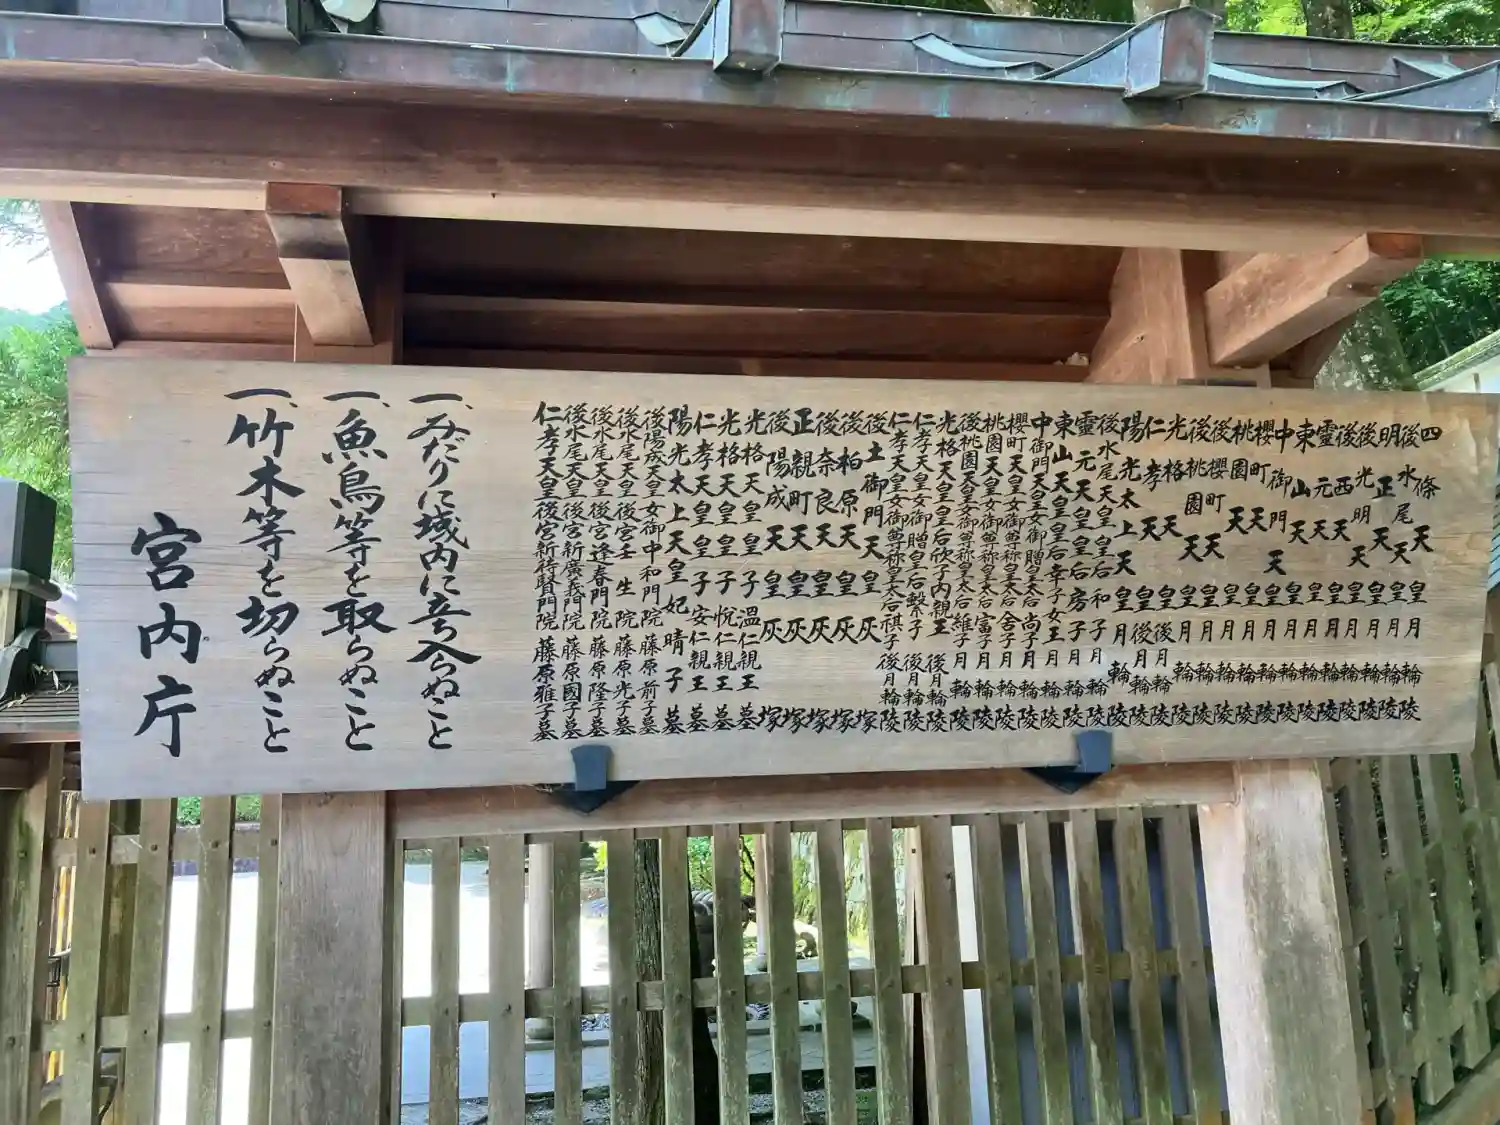 四條天皇月輪陵
後水尾天皇月輪陵
明正天皇月輪陵
後光明天皇月輪陵
後西天皇月輪陵
靈元天皇月輪陵
東山天皇月輪陵
中御門天皇月輪陵
櫻町天皇月輪陵
桃園天皇月輪陵
後櫻町天皇月輪陵
後桃園天皇月輪陵
光格天皇後月輪陵
仁孝天皇後月輪陵
陽光太上天皇月輪陵
後水尾天皇皇后和子月輪陵
靈元天皇皇后房子月輪陵
東山天皇皇后幸子女王月輪陵
中御門天皇女御贈皇太后尚子月輪陵
櫻町天皇女御尊称皇太后舍子月輪陵
桃園天皇女御尊称皇太后富子月輪陵
後桃園天皇女御尊称皇太后維子月輪陵
光格天皇皇后欣子内親王後月輪陵
仁孝天皇女御贈皇后繫子後月輪陵
仁孝天皇女御尊称皇太后祺子後月輪陵
後土御門天皇灰塚
後柏原天皇灰塚
後奈良天皇灰塚
正親町天皇灰塚
後陽成天皇灰塚
光格天皇皇子温仁親王墓
光格天皇皇子悦仁親王墓
仁孝天皇皇子安仁親王墓
陽光太上天皇妃晴子墓
後陽成天皇女御中和門院藤原前子墓
後水尾天皇後宮壬生院藤原光子墓
後水尾天皇後宮逢春門院藤原隆子墓
後水尾天皇後宮新廣義門院藤原國子墓
仁孝天皇後宮新待賢門院藤原雅子墓
一、みだりに域内に立ち入らぬこと
一、魚鳥等を取らぬこと
一、竹木等を切らぬこと
宮内庁